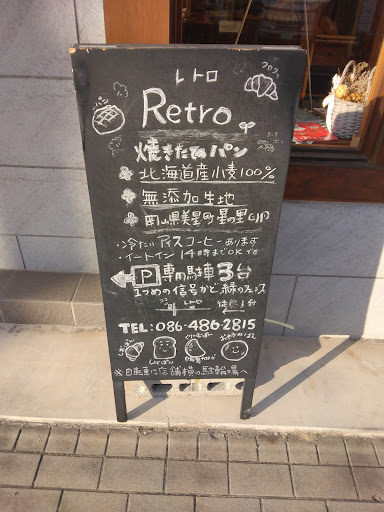 レトロ
Retro
焼きたてのパン
北海道産小麦100%
無添加生地
岡山県美星町星の里
・冷たいアイスコーヒーあります
・イートイン 14時までOKです
P 専用駐車3台
1つめの信号かど、緑のフェンス
レトロ
TEL: 086-486-2815
※自転車は店舗横の駐輪場へ